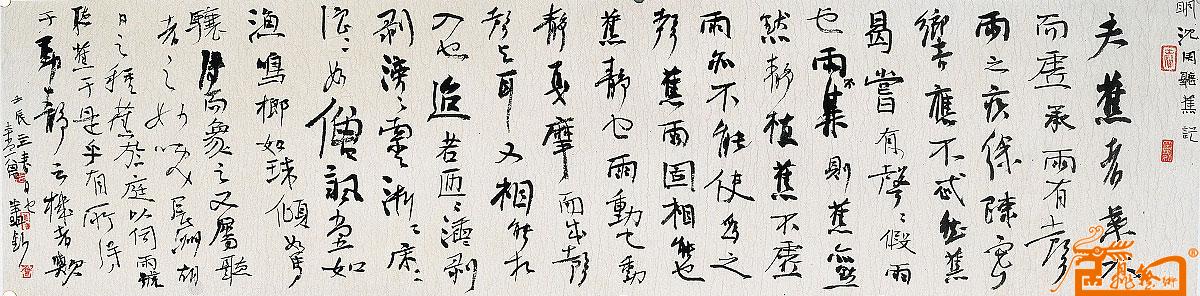 明沈周聽蕉記
夫蕉者葉大
而虛承雨有聲
雨之疾徐疎密
響應不忒然蕉
曷嘗有聲〻假雨
也雨不集則蕉亦默
然靜植蕉不虛
雨亦不能使為之
聲蕉雨固相能也
蕉靜也雨動也動
靜戛摩而成聲
聲與耳又相能相
入也迨若匝〻㴙剝
剝滂〻索淅〻床〻
浪〻如僧諷堂如
漁鳴榔如珠傾如馬
驤得而象之又屬聽
者之妙也長洲胡
日之種蕉於庭以伺雨號
聽蕉于是乎有所得
于動靜之機者歟
壬辰立春日